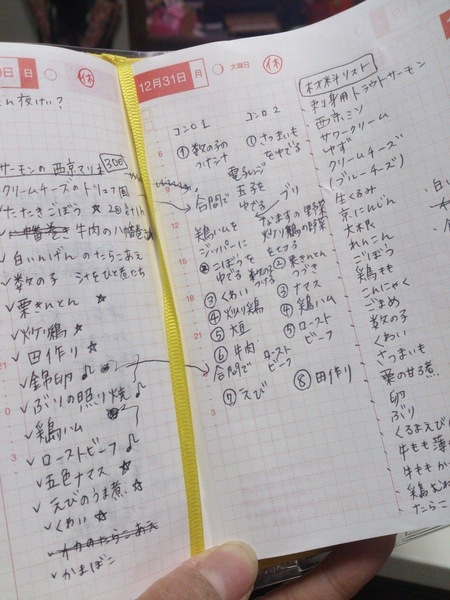 日
休
夜は?
サーモンの西京マリネ 300
クリームチーズのトリュフ風
✓たたきごぼう ☆
✓牛肉の八幡巻
✓白いんげんのたらこあえ
✓数の子
✓栗きんとん ☆
✓炒り鶏 ☆
✓田作り ☆
✓錦卵 ♪
✓ぶりの照り焼 ♪
✓鶏ハム
✓ローストビーフ ♪
✓五色ナマス ☆
✓えびのうま煮 ☆
✓くわい ☆
✓かまぼこ
12月31日 月
大晦日
休
コンロ1
コンロ2
①数の子の
つけナオ
①さつまいも
をゆでる
電子レンジ
合間で
玉子を
ゆでる
ブリ
鶏ハムを
ジッパーに
なますの野菜
炒り鶏の野菜
を切る
ごぼうを
ゆでる
数の子
つける
②栗きんとん
つづき
③くわい
③ナマス
④炒り鶏
④鶏ハム
⑤大豆
⑤ロースト
ビーフ
⑥牛肉
合間で
ロースト
ビーフ
⑦えび
⑧田作り
材料リスト
刺身用トラウトサーモン
西京ミソ
サワークリーム
ゆず
クリームチーズ
(ブルーチーズ)
生くるみ
京にんじん
大根
れんこん
ごぼう
鶏もも
こんにゃく
ごまめ
数の子
くわい
さつまいも
栗の甘露煮
卵
ぶり
くるまえび
牛もも薄
牛ももか
鶏むね
たらこ